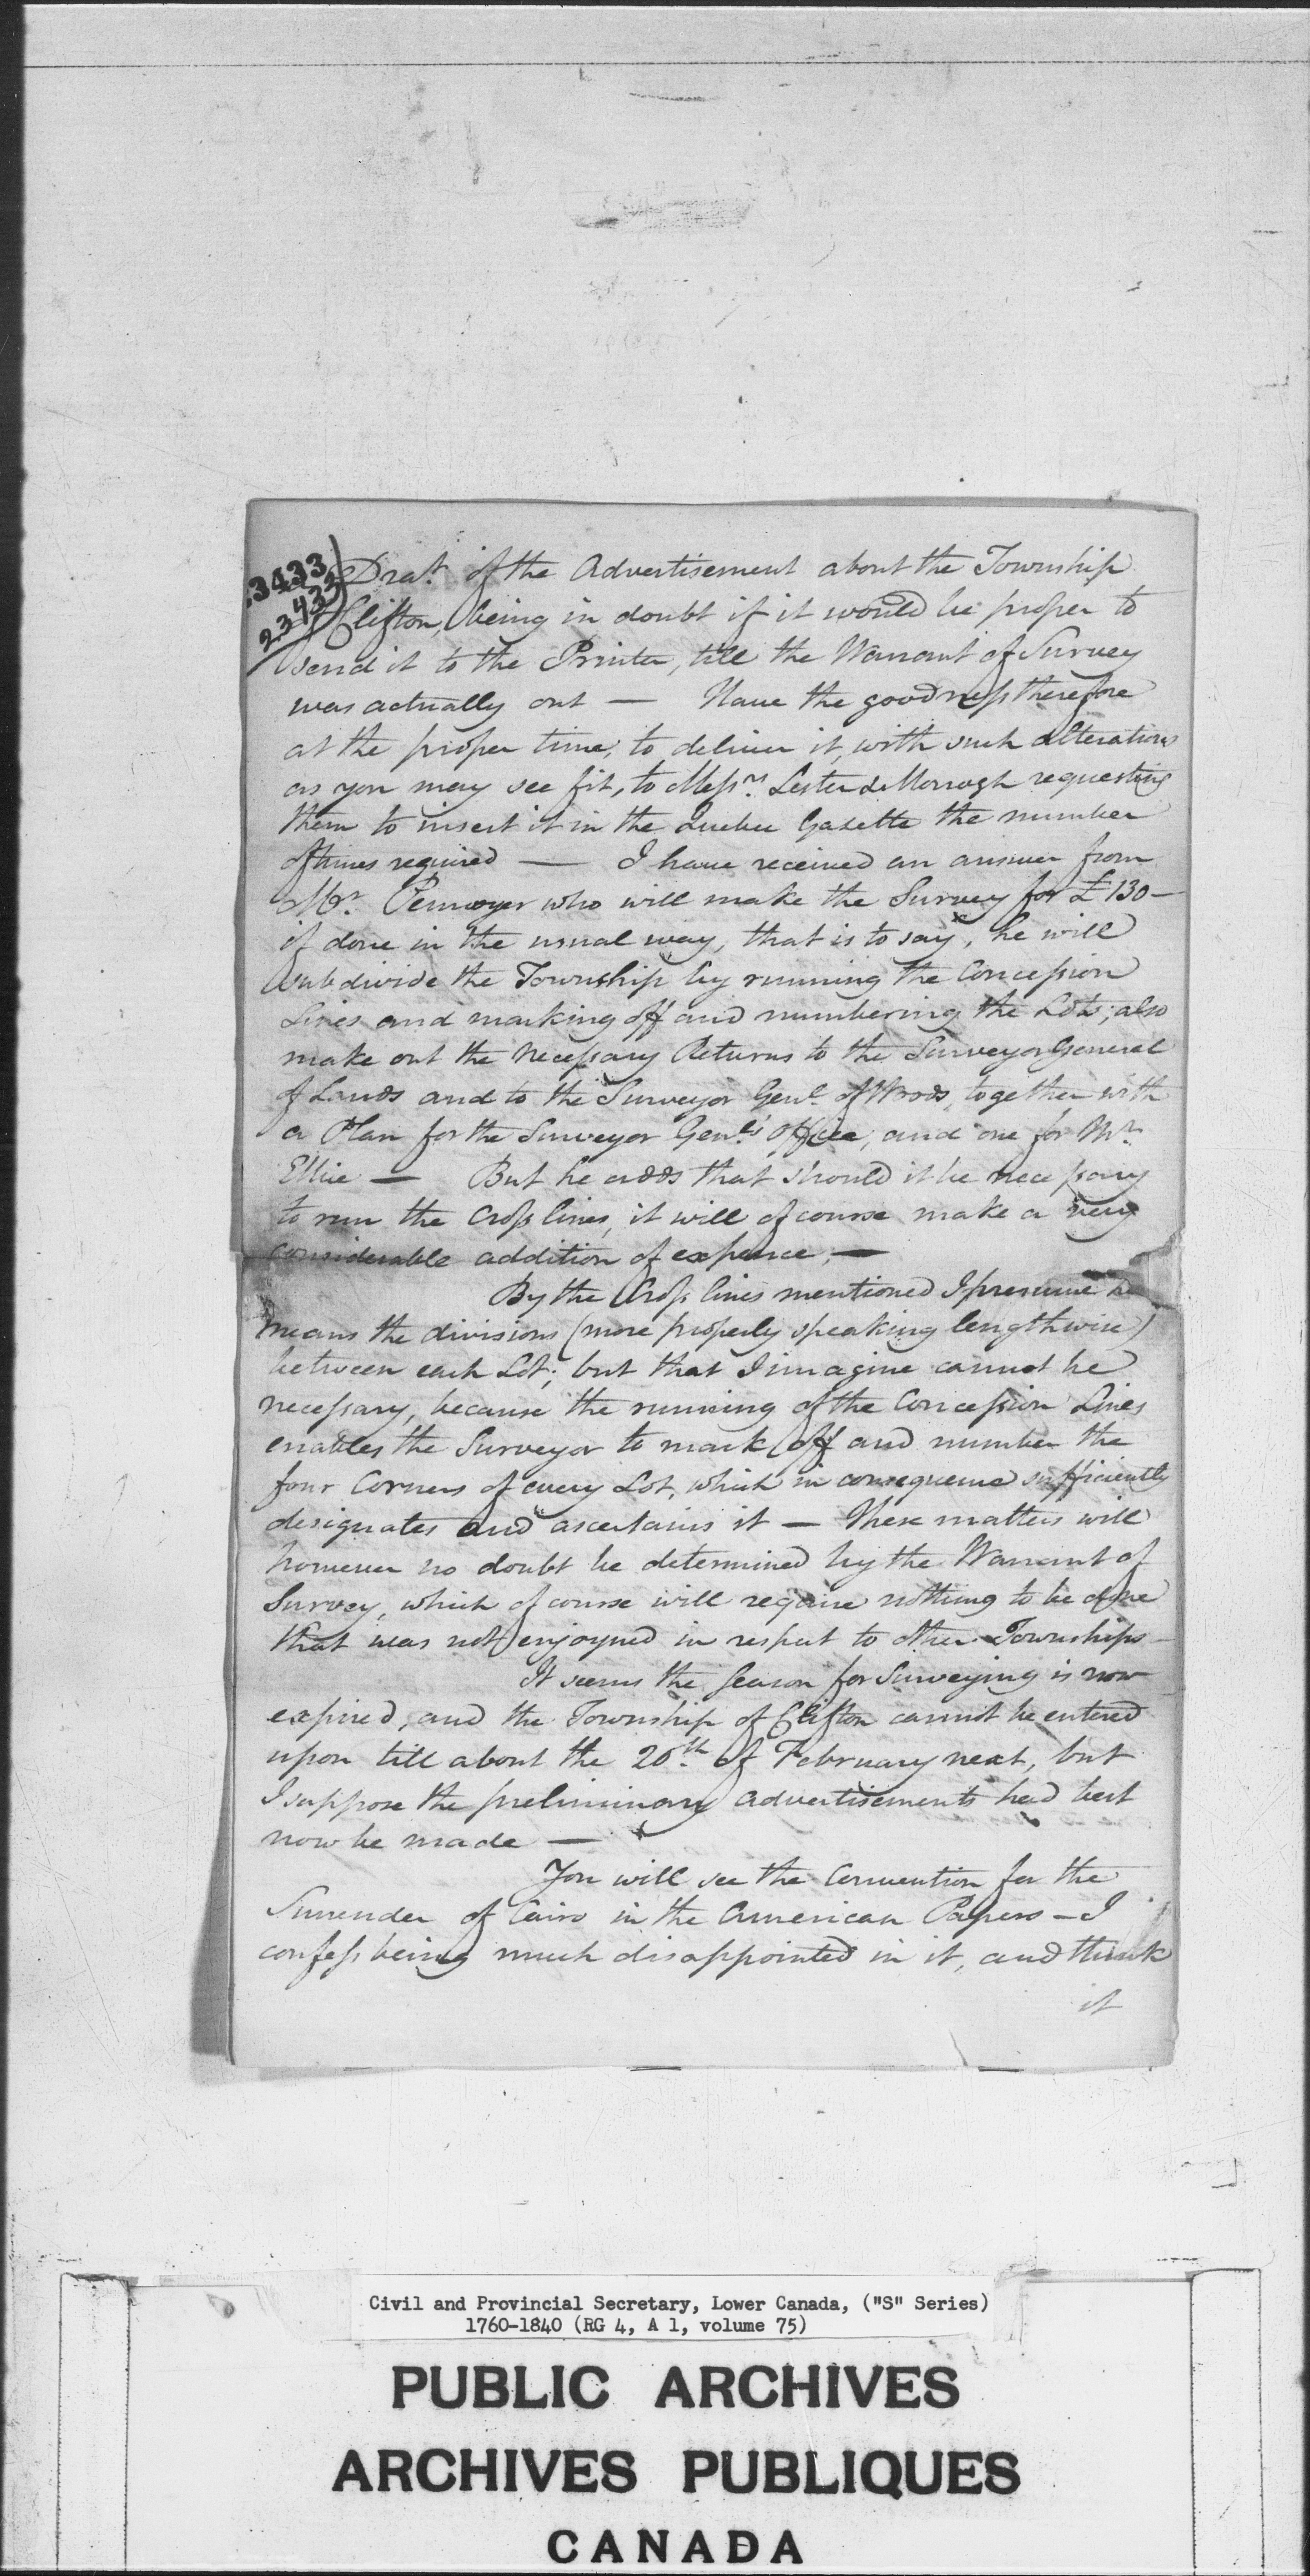 23433
23433
Drat. of the Advertisement about the Township
of Clifton, being in doubt if it would be proper to
send it to the Printer, till the Warrant of Survey
was actually out — Have the goodness therefore
at the proper time, to deliver it, with such alterations
as you may see fit, to Messrs. Lester & Morrogh requesting
them to insert it in the Quebec Gazette the number
of times required — I have received an answer from
Mr. Pennoyer who will make the Survey for £130 —
if done in the usual way, that is to say, he will
subdivide the Township by running the Concession
Lines and marking off and numbering the Lots; also
make out the necessary Returns to the Surveyor General
of Lands and to the Surveyor Genl. of Woods, together with
a Plan for the Surveyor Genl's. Office, and one for Mr.
Ellice — But he adds that should it be necessary
to run the Cross lines, it will of course make a very
considerable addition of expence, —
By the Cross lines mentioned I presume he
means the divisions (more properly speaking lengthwise)
between each Lot; but that I imagine cannot be
necessary, because the running of the Concession Lines
enables the Surveyor to mark off and number the
four Corners of every Lot, which in consequence sufficiently
designates and ascertains it — These matters will
however no doubt be determined by the Warrant of
Survey, which of course will require nothing to be done
that was not enjoyned in respect to other Townships —
It seems the Season for Surveying is now
expired, and the Township of Clifton cannot be entered
upon till about the 20th. of February next, but
I suppose the preliminary advertisements had best
now be made —
You will see the Convention for the
Surrender of Cairo in the American Papers — I
confess being much disappointed in it, and think
it
Civil and Provincial Secretary, Lower Canada, ("S" Series)
1760-1840 (RG 4, A 1, volume 75)
PUBLIC ARCHIVES
ARCHIVES PUBLIQUES
CANADA